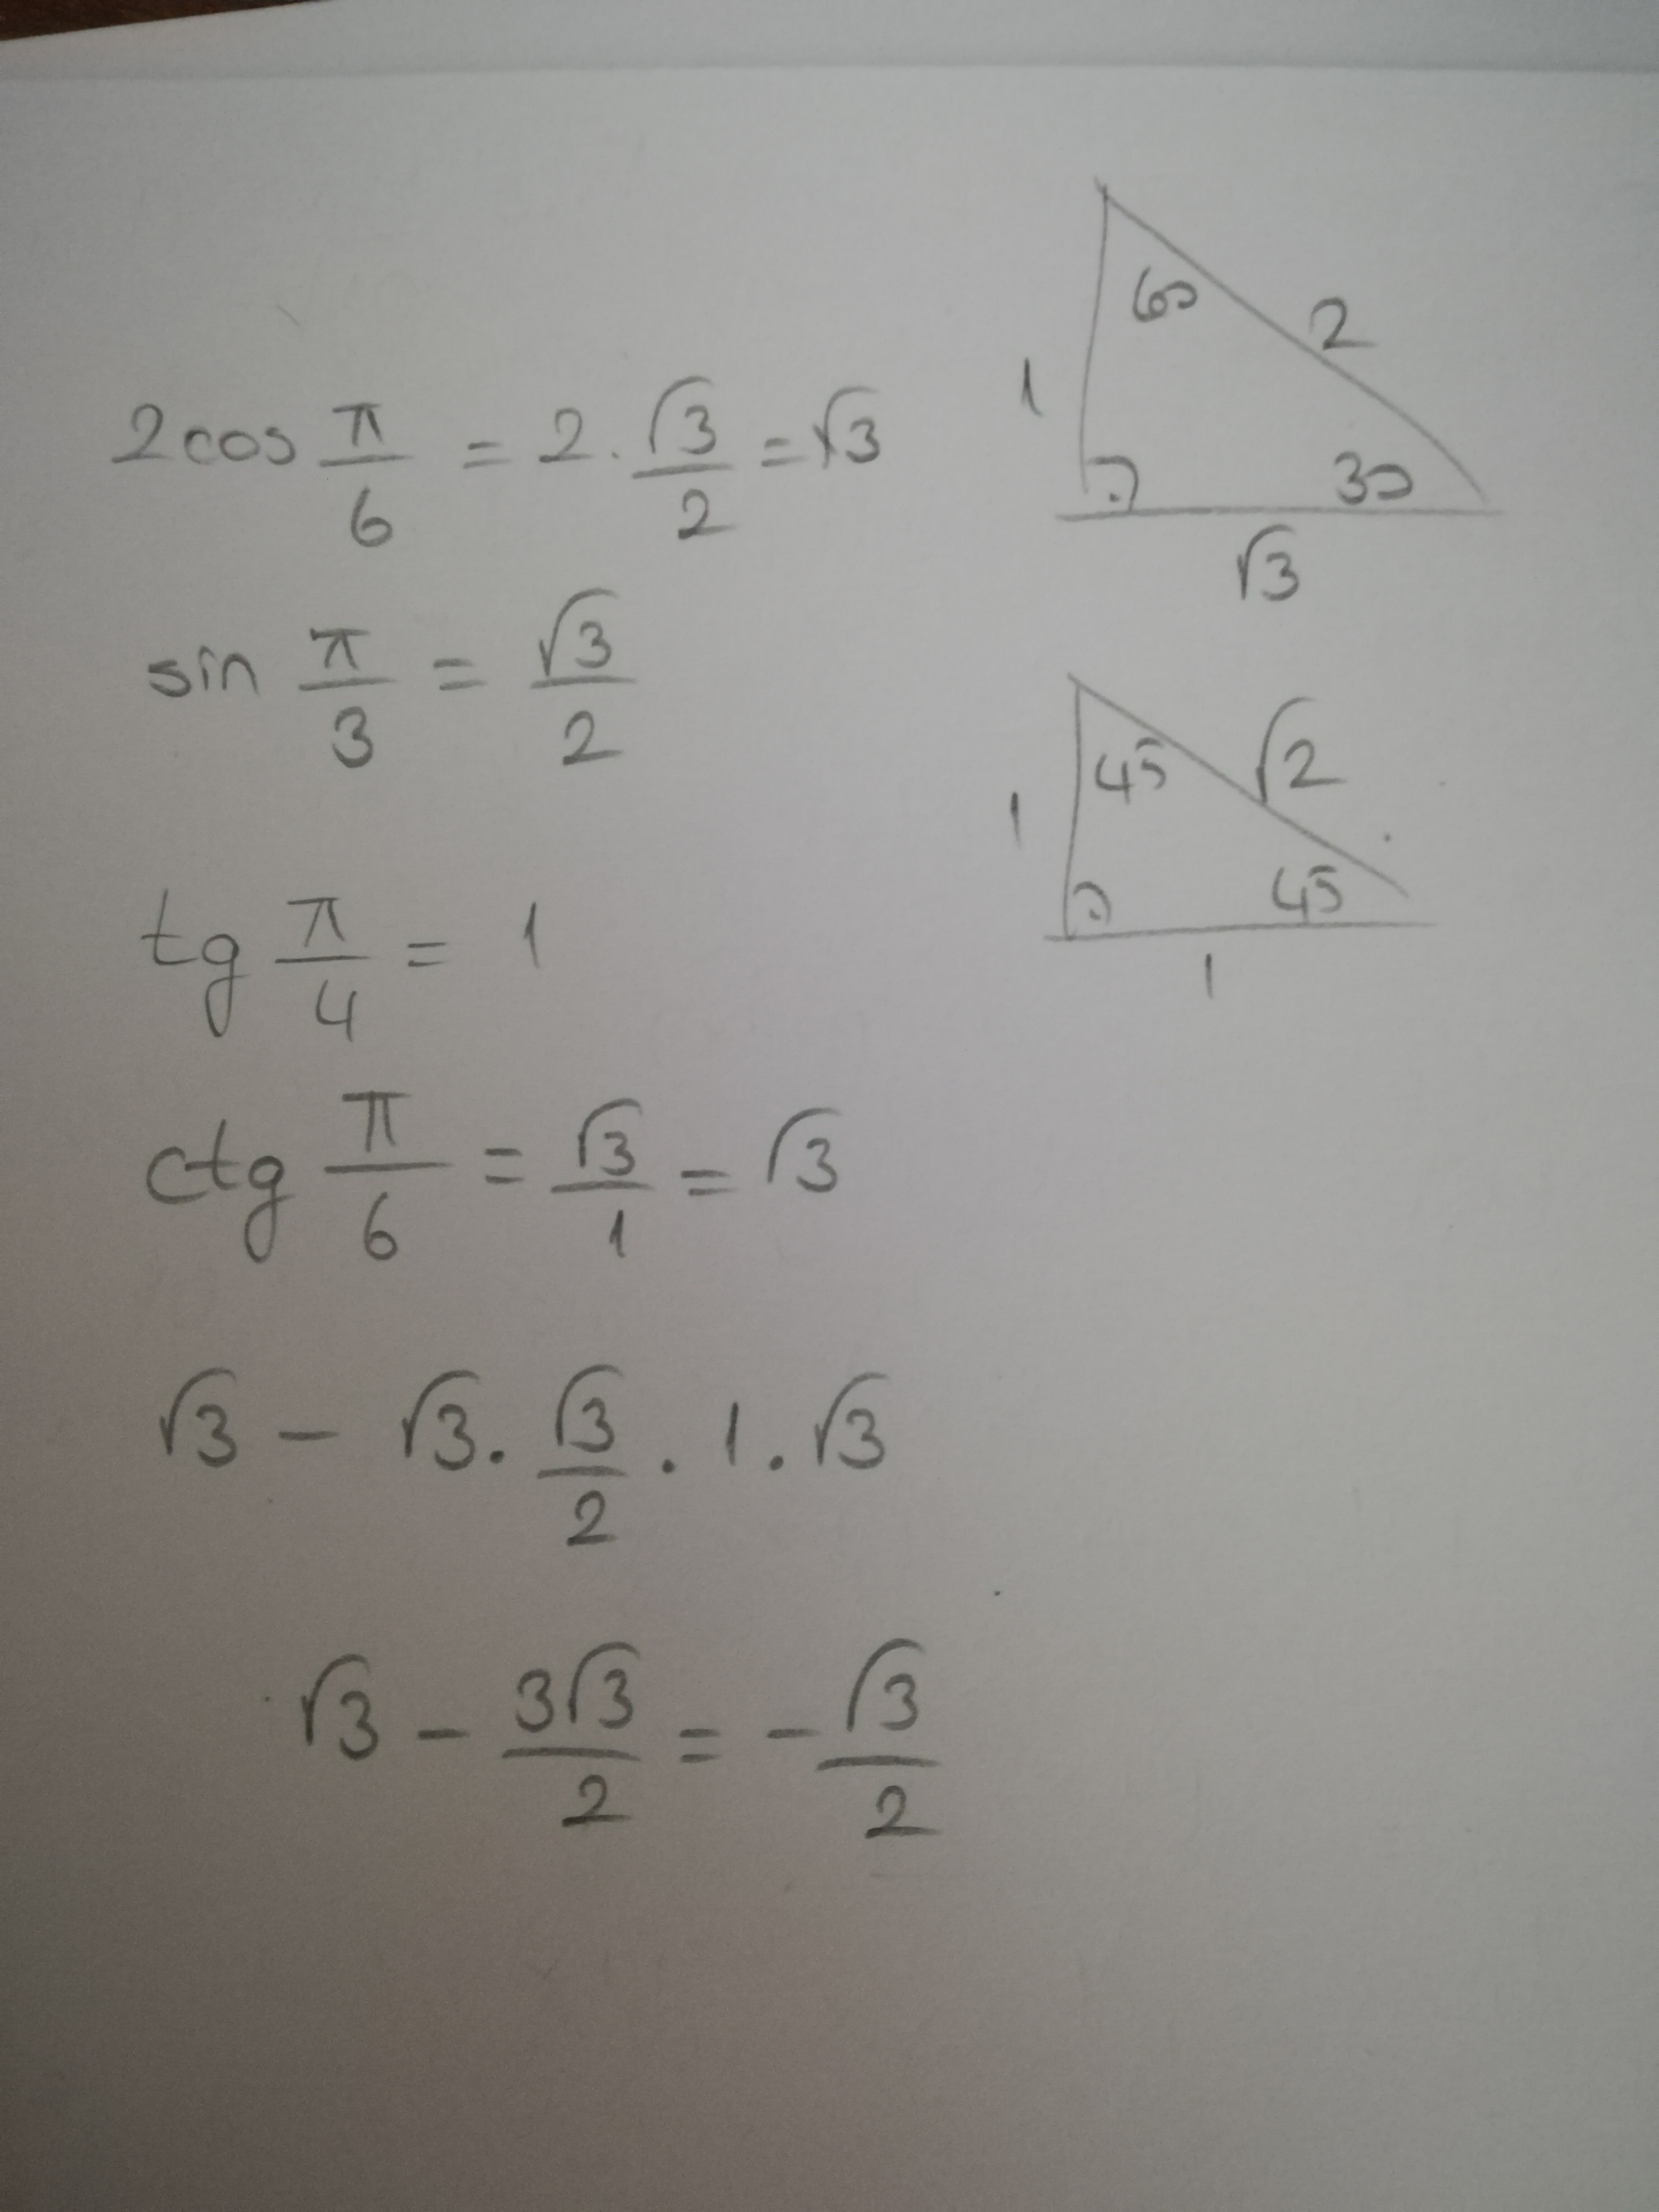 2cos π/6 = 2·√3/2 = √3
sin π/3 = √3/2
tg π/4 = 1
ctg π/6 = √3/1 = √3
√3 - √3 · √3/2 · 1 · √3
√3 - 3√3/2 = -√3/2
60
2
1
30
√3
45
√2
1
45
1